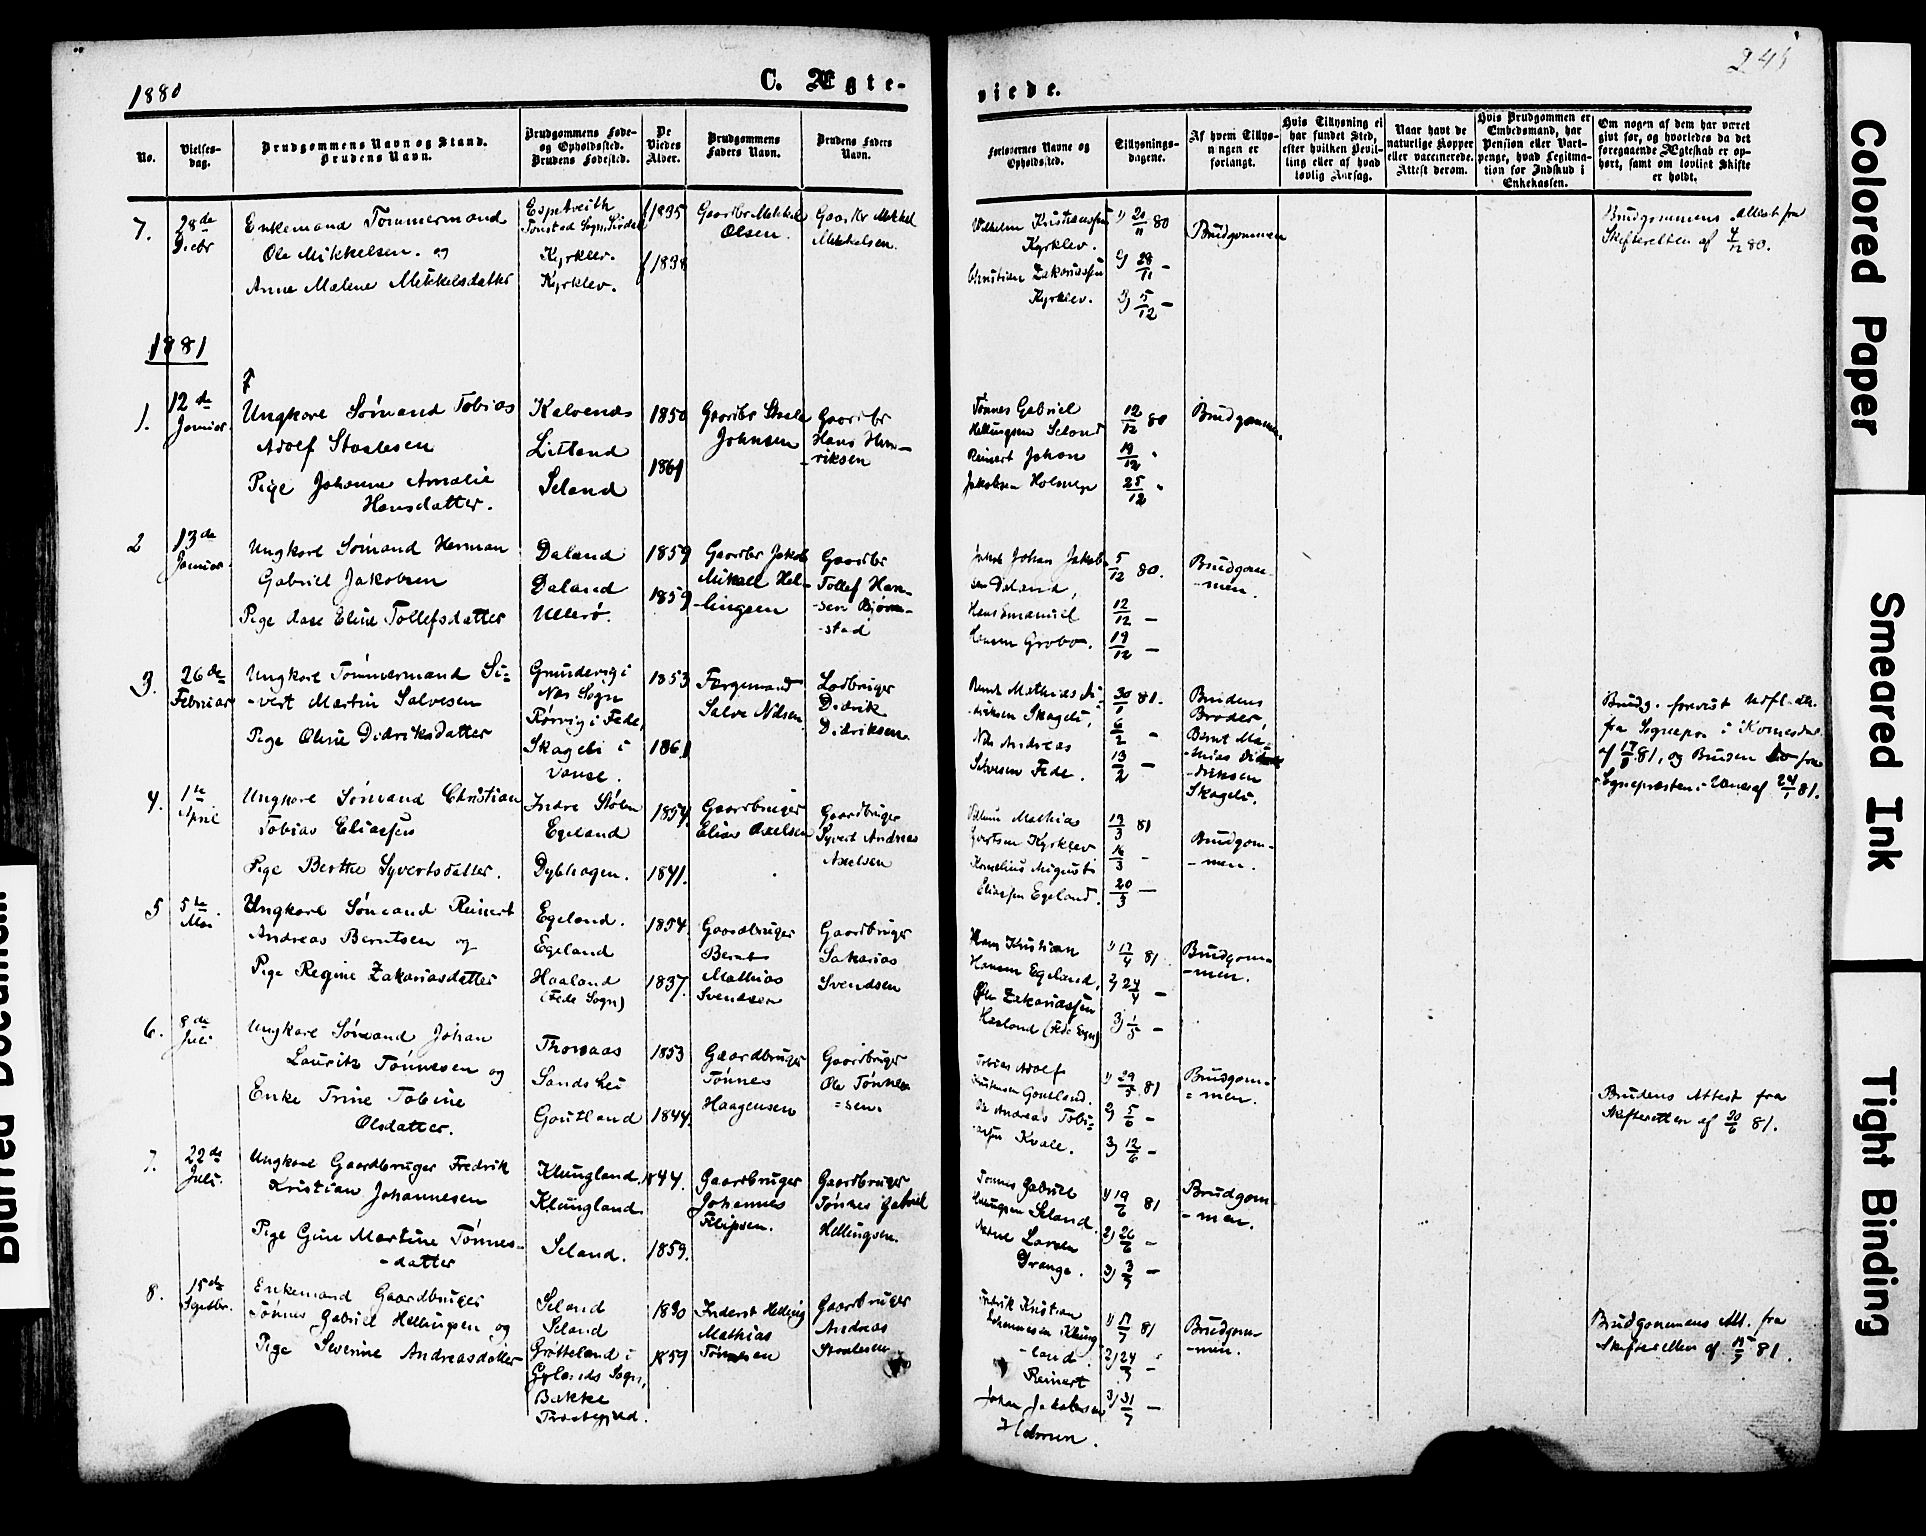 1880
C. Ægte-
No.
Vielses-
dag.
Brudgommens Navn og Stand.
Brudens Navn.
Brudgommens Føde-
og Opholdssted.
Brudens Fødested.
De
Viedes
Alder.
Brudgommens
Faders Navn.
Brudens Faders
Navn.
7.
28de
Decbr
Enkemand Tømmermand
Ole Mikkelsen. og
Anne Malene Mikkelsdatter
Tonstad Sogn Sirdal
Kyrklev.
Kyrklev.
f 1835
f 1838
Gaardbr Mikkel
Olsen.
Gaardbr Mikkel
Mikkelsen.
1881
1.
12de
Januar.
Ungkarl Sømand Tobias
Adolf Staalesen
Pige Johanne Amalie
Hansdatter.
Kalvenæs
Litland
Seland
1850
1861
Gaardbr Staale
Johnsen
Gaardbr
Hans Hen-
-riksen
2
13de
Januar.
Ungkarl Sømand Herman
Gabriel Jakobsen
Pige Aase Eline Tollefsdatter
Daland
Daland
Ullerø.
1859
1859
Gaardbr Jakob
Mikael Hel-
-lingsen
Gaardbr
Tollef Han-
-sen Bjørn-
-stad
3.
26de
Februar
Ungkarl Tømmermand Si-
-vert Martin Salvesen
Pige Oline Didriksdatter
Grundevig i
Næs Sogn
Rørvig i Fede,
Skagebi i
Vanse.
1853
1861
Færgemand
Salve Nilsen
Lodbruger
Didrik
Didriksen.
4.
1ste
April
Ungkarl Sømand Christian
Tobias Eliassen
Pige Berthe Syvertsdatter.
Indre Stølen
Egeland
Dybhagen.
1854.
1841.
Gaardbruger
Elias Axelsen
Gaardbruger
Syvert Andreas
Axelsen
5
5te
Mai
Ungkarl Sømand Reinert
Andreas Berntsen og
Pige Regine Zakariasdatter
Egeland.
Egeland
Haaland
(Fede Sogn)
1854.
1837.
Gaardbruger
Bernt
Mathias
Svendsen
Gaardbruger
Sakarias
Svendsen
6.
8de
Juli
Ungkarl Sømand Johan
Laurits Tønnesen og
Enke Trine Tobine
Olsdatter.
Thomaas
Sandshei
Goutland
1853
1844.
Gaardbruger
Tønnes
Haagensen
Gaardbruger
Ole Tønne-
=sen.
7.
22de
Juli.
Ungkarl Gaardbruger Fredrik
Kristian Johannesen
Pige Gine Martine Tønnes-
-datter
Klungland.
Klungland.
Seland.
1844.
1859.
Gaardbruger
Johannes
Filipsen.
Gaardbruger
Tønnes Gabriel
Hellingsen.
8.
15de
Septbr.
Enkemand Gaardbruger
Tønnes Gabriel Hellingsen og
Pige Severine Andreasdatter
Seland
Seland
Grøtteland i
Gylands Sogn,
Bakke
Præstegjeld.
1830
1859
Inderst Helling
Mathias
Tønnesen
Gaardbruger
Andreas
Staalesen
viede.
Forlovernes Navne og
Opholdssted.
Tillysnings-
dagene.
Af hvem Tillys-
ningen er
forlangt.
Hvis Tillysning ei
har fundet Sted,
efter hvilken Bevil-
ling eller af hvad
lovlig Aarsag.
Naar havt de
naturlige Kopper
eller vaccinerede.
Attest derom.
Hvis Brudgommen er
Embedsmand, har
Pension eller Vart-
penge, hvad Legitima-
tion for Indskud i
Enkekassen.
Om nogen af dem har været
givt før, og hvorledes da det
foregaaende Ægteskab er op-
hørt, samt om lovligt Skifte
er holdt.
Vilhelm Kristiansen
Kyrklev.
Christian Zakariassen
Kyrklev.
1) 20/11 80
2) 28/11 -
3) 5/12 -
Brudgommen
Brudgommens Attest fra
Skifteretten af 7/12 80.
Tønnes Gabriel
Hellingsen Seland
Reinert Johan
Jakobsen Holmen
12/12 80
19/12 "
25/12 "
Brudgommen.
Jakob Johan Jakob-
sen Daland,
Hans Emanuel
Hansen Grobo.
5/12 80.
12/12 -
19/12 -
Brudgom-
-men.
Bernt Mathias Di-
-driksen Skagebi,
Nils Andreas
Salvesen Fede.
30/1 81.
6/2 "
13/2 -
Brudens
Broder,
Bernt Ma-
-thias Di-
-driksen
Skagebi.
Brudg. forevist
fra Sognepr. i Kvinesdal
af 81, og Bruden fra
Sognepræsten i Vanse af 24/1 81.
Mathias
Kyrklev
Kornelius August
Eliassen Egeland.
13/3 81
20/3 -
Brudgom-
-men.
Hans Kristian
Hansen Egeland,
Ole Zakariassen
Haaland (Fede Sogn)
1) 17/4 81
2) 24/4 -
3) 1/5 -
Brudgom-
-men.
Tobias Adolf
Andreas Tobi-
Kvale.
1) 29/5 81
2) 5/6 -
3) 12/6 -
Brudgom-
= men.
Brudens Attest fra
Skifteretten af 30/6 81.
Tønnes Gabriel
Hellingsen Seland.
Larsen
Drange.
1) 19/6 81
2) 26/6 -
3) 3/7 -
Brudgom-
-men.
Fredrik Kristian
Johannesen Klung-
-land.
Reinert
Johan Jakobsen
Holmen.
1) 17/7 81
2) 24/7 -
3) 31/7 -
Brudgom-
-men.
Brudgommens Att. fra
Skifteretten af 81.
Colored Paper
Smeared Ink
Tight Binding
Blurred Document